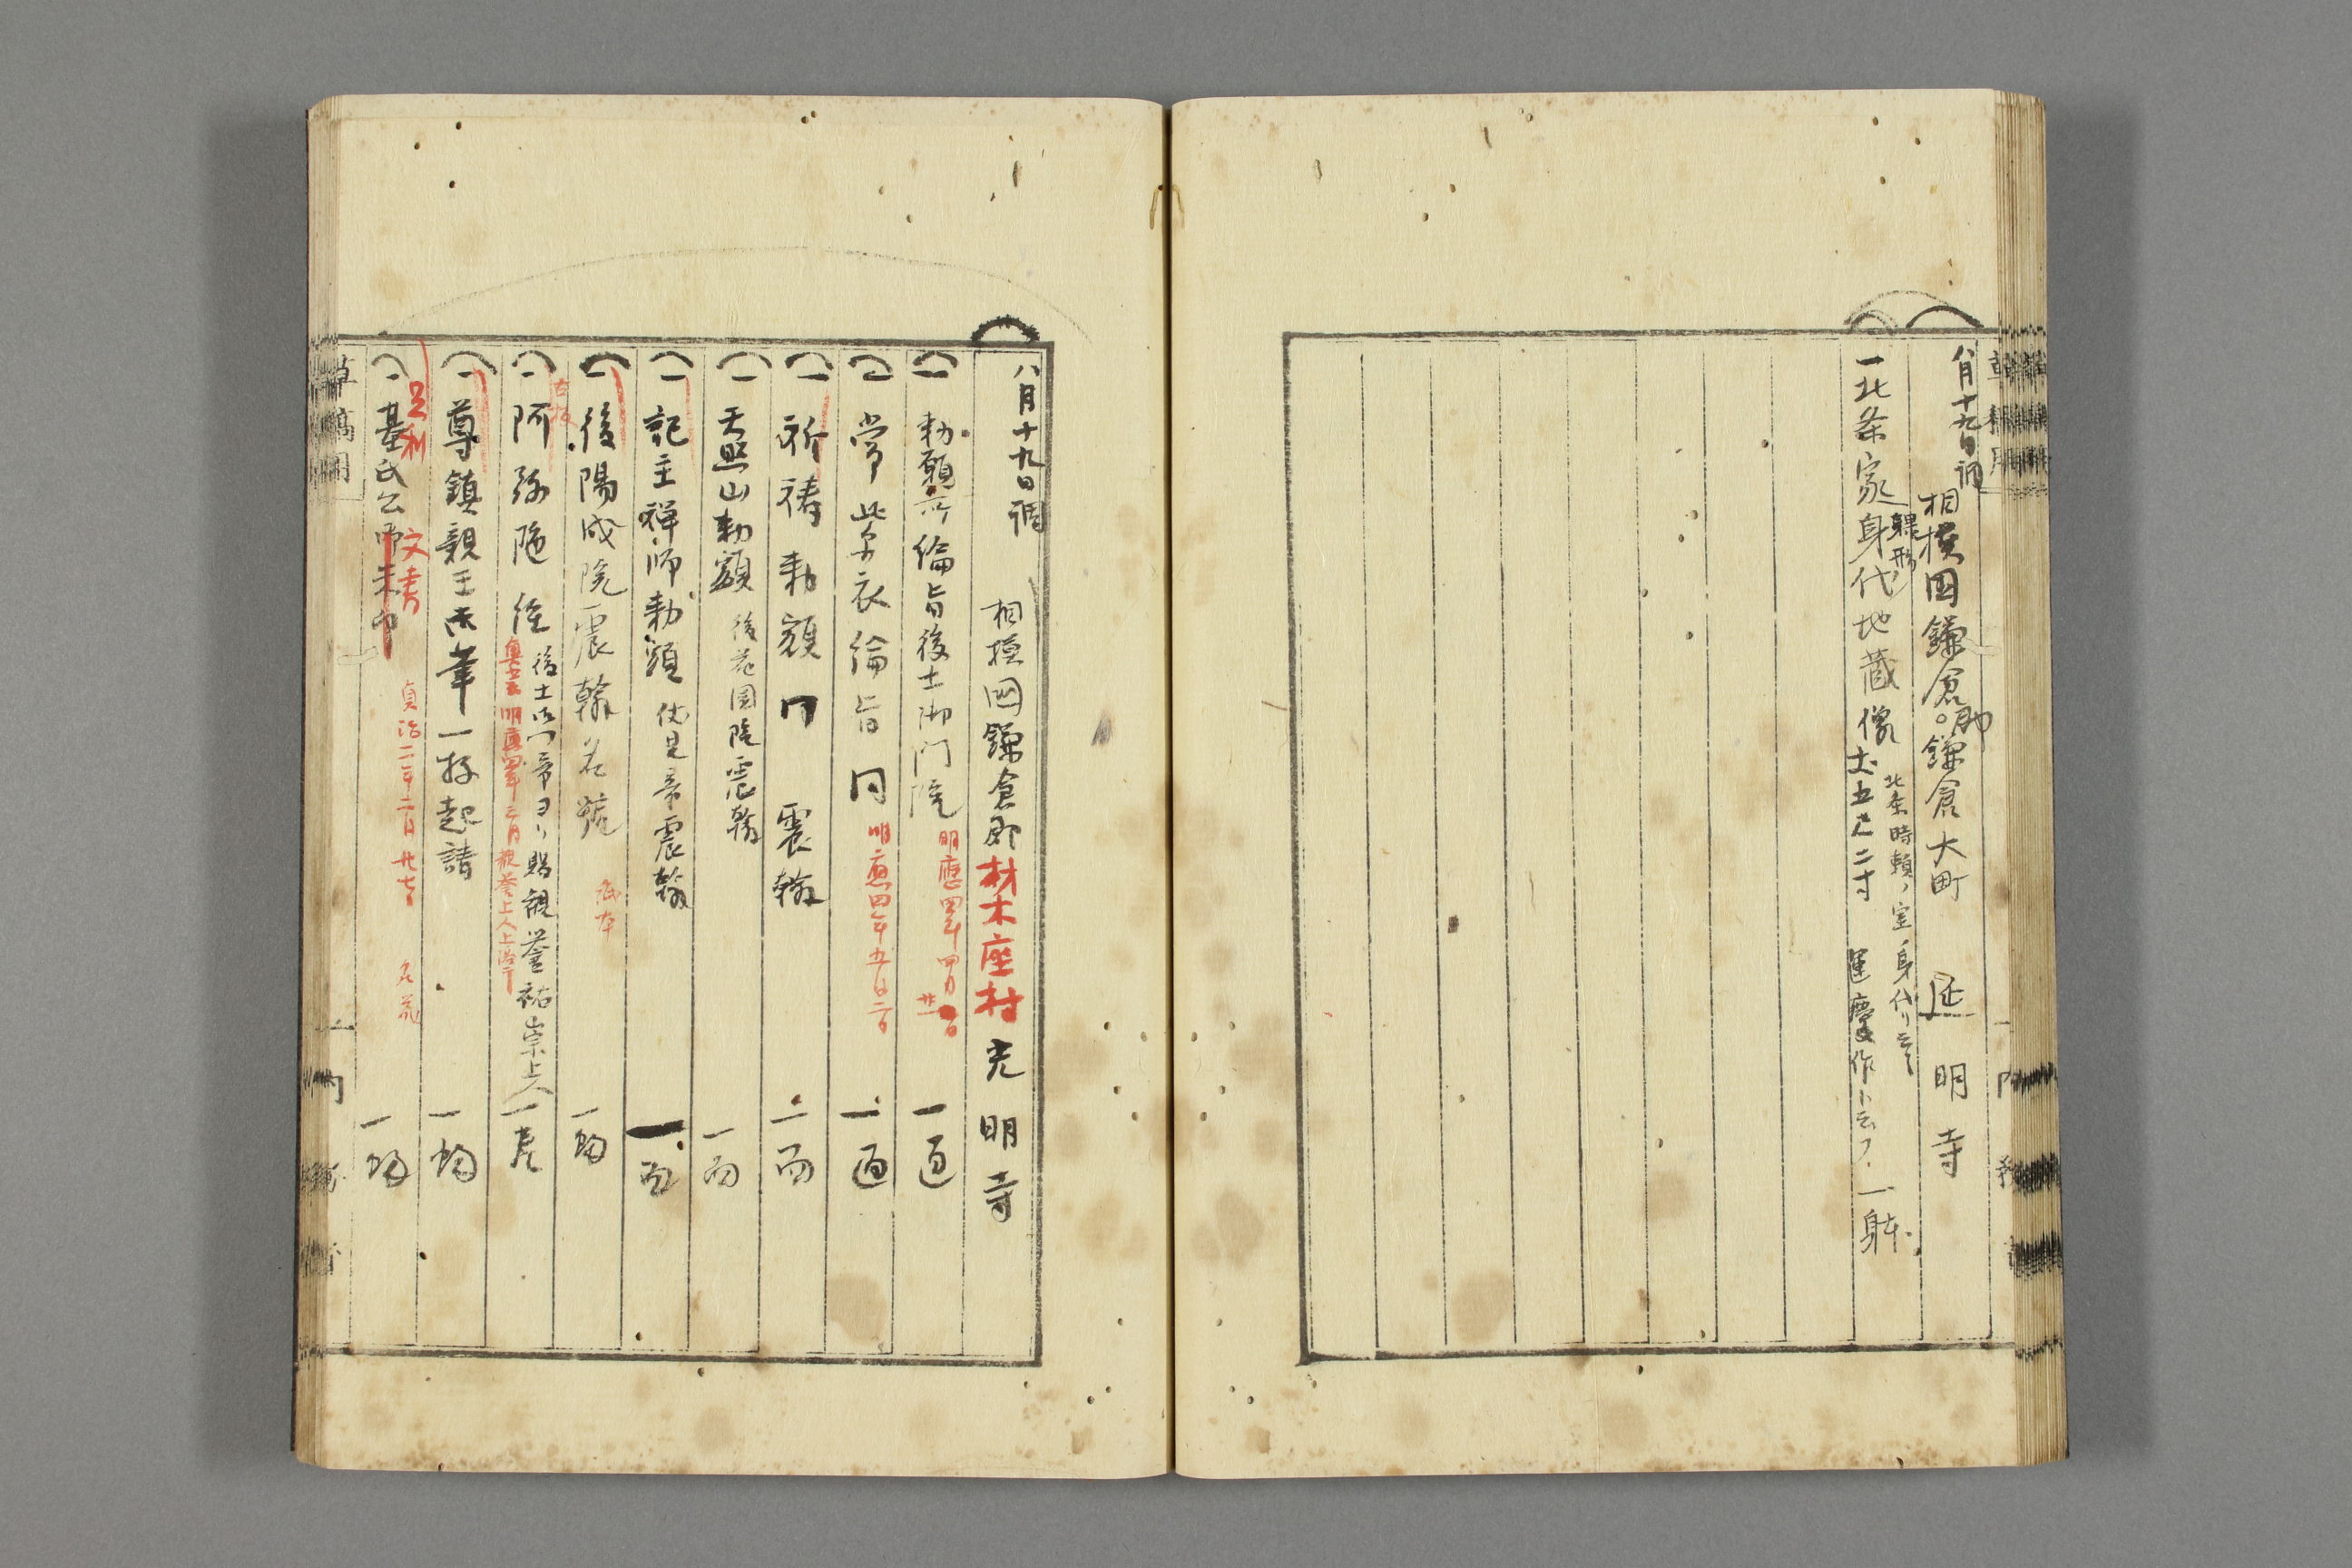 八月十九日調
相模国鎌倉郡鎌倉大町 延明寺
一北条家身代地蔵像 土五尺二寸 運慶作ト云フ 一躰
裸形
北条時頼ノ室ノ身代リ云々
八月十九日調
相模国鎌倉郡材木座村光明寺
一勅願所綸旨後土御門院 一通
明應四年四月廿一日
一常紫衣綸旨 同 一通
明應四年五月二日
一祈祷勅額 同 震翰 二面
一天照山勅額 後花園院震翰 一面
一記主禅師勅額 伏見帝震翰 一面
一後陽成院震翰名號 一幅
紙本
一阿弥陀経 後土御門帝ヨリ賜観誉祐崇上人 一巻
一尊鎮親王御筆一枚起請 一幅
一足利基氏公御朱印 一幅
文書
貞治二年二月廿七日
草稿用
内務省